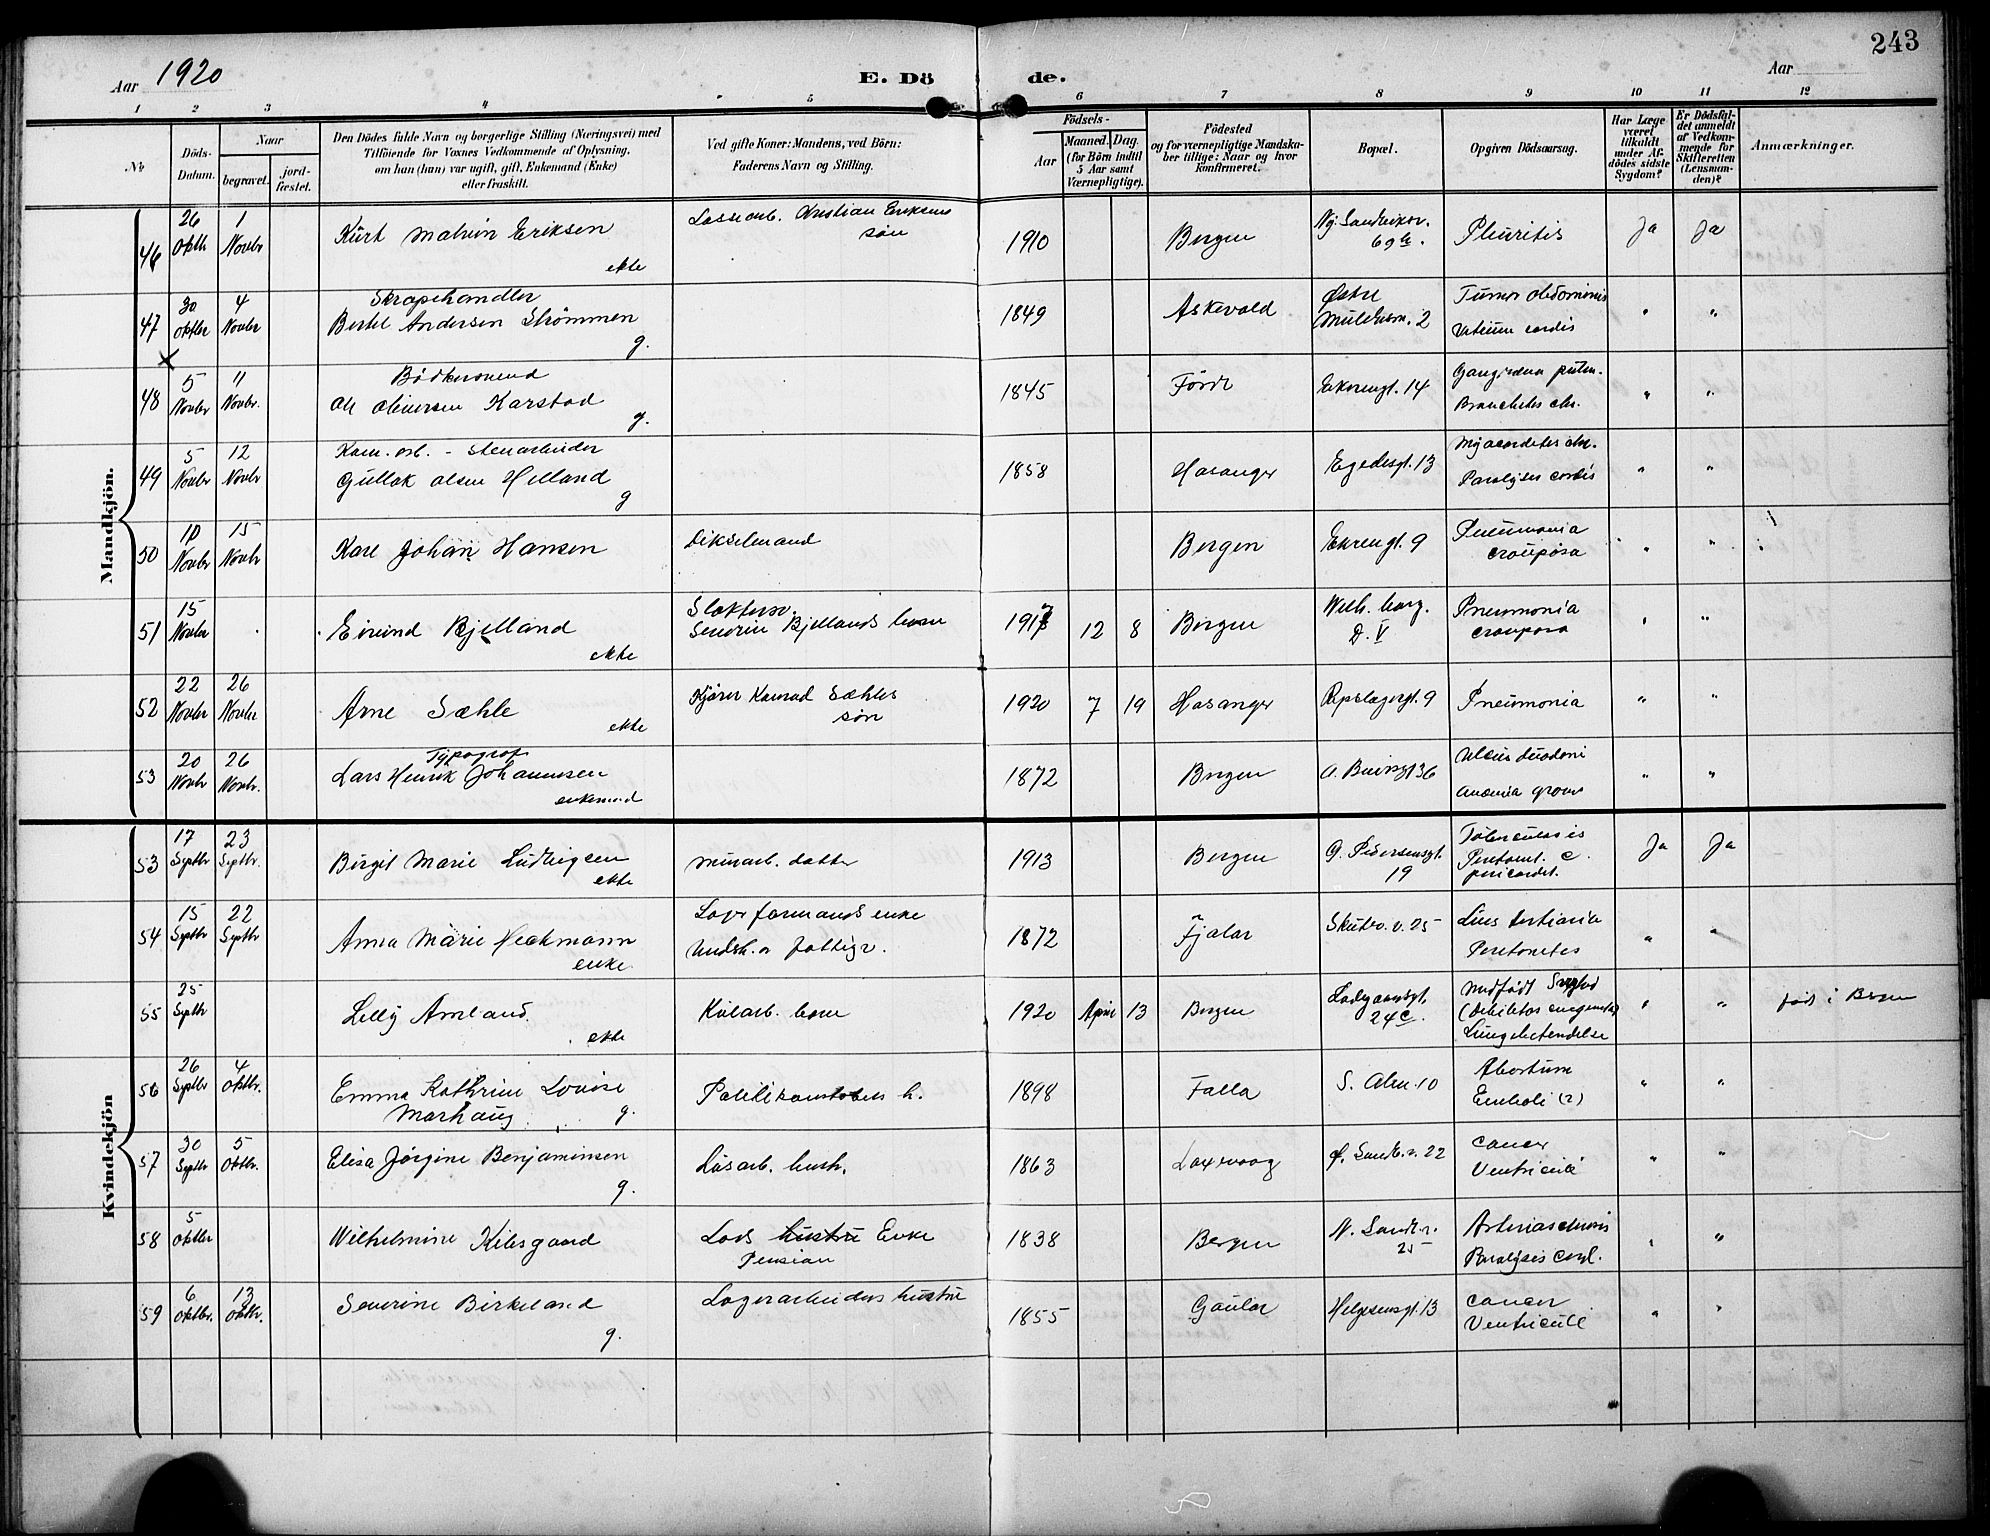 243
Aar 1920
E. Dö de.
Aar
1 2 3 4 5 6 7 8 9 10 11 12
No
Döds-Datum.
Naar
begravet.
jordfæstet.
Den Dödes fulde Navn og borgerlige Stilling (Næringsvei) med
Tilföiende for Voxnes Vedkommende af Oplysning,
om han (hun) var ugift, gift, Enkemand (Enke)
eller fraskilt.
Ved gifte Koner: Mandens, ved Börn:
Faderens Navn og Stilling.
Födsels-
Aar
Maaned. Dag.
(for Börn indtil
5 Aar samt
Værnepligtige).
Födested
og for værnepligtige Mandska-
ber tillige: Naar og hvor
konfirmeret.
Bopæl.
Opgiven Dödsaarsag.
Har Læge
været
tilkaldt
under Af-
dödes sidste
Sygdom?
Er Dödsfal-
det anmeldt
af Vedkom-
mende for
Skifteretten
(Lensman-
den)?
Anmærkninger.
Mandkjön.
46 26 Oktbr 1 Novbr Kurt Malvin Eriksen ekte Lossearb. Kristian Eriksens søn 1910 Bergen Ny. Sandviksv. 69 b. Pleuritis Ja Ja
47 30 Oktbr 4 Novbr Skrapehandler Bertel Andersen Strømmen g. 1849 Askevold Østre Muldesm. 2 Tumor abdominis Vitium cordis " "
48 5 Novbr 11 Novbr. Bødkersvend Ole Karstad g. 1845 Førde Ekrengt. 14 Gangræna pulm. Bronchitis chr. " "
49 5 Novbr 12 Novbr Kom. arb. - Stenarbeider Gullak Olsen Helland g 1858 Hosanger Egedesgt. 13 Myocarditis chr. Paralysis cordis " "
50 10 Novbr 15 Novbr Karl Johan Hansen Dikselmand Bergen Ekrengt. 9 Pneumonia crouposa " "
51 15 Novbr Eivind Bjelland ekte Slaktersv. Severin Bjellands barn 1917 12 8 Bergen Welh. D. V Pneumonia crouposa " "
52 22 Novbr 26 Novbr Arne Sæhle ekte Kjører Konrad Sæhles søn 1920 7 19 Hosanger Repslagergt. 9 Pneumonia " "
53 20 Novbr 26 Novbr. Typograf Lars Henrik Johannesen enkemand 1872 Bergen 36 Ulcus duodeni Anæmia gravis " "
Kvindekjön
53 17 Septbr 23 Septbr. Birgit Marie Ludvigsen ekte Murarb. datter 1913 Bergen G. Pedersensgt. 19 Tuberculosis Peritonit. c. pericardit. Ja Ja
54 15 Septbr 22 Septbr Anna Marie Heckmann enke Lagerformands enke Undsk. av fattigv. 1872 Fjalar Skutev. v. 25 Lues tertiaria Peritonitis " "
55 25 Septbr Lilly Amland. ekte Kularb. barn 1920 April 13 Bergen Ladegaardsgt. 24 C. Medfødt Svaghed (debilitas congenita) Lungebetendelse " " født i Bergen
56 26 Septbr 4 Oktbr. Emma Kathrine Lovise Marhaug g. Politikonstabels h. 1898 Falla S. Alm. 10 Abortum Emboli (?) " "
57 30 Septbr 5 Oktbr. Elisa Jørgine Benjaminsen g. Løsarb. hustr. 1863 Laxevaag Ø. Sandv. v. 22 Cancer Ventriculi " "
58 5 Oktbr Wilhelmine Kilsgaard Lods hustru Enke Pension 1838 Bergen N. Sandv. v. 25 Paralysis cord. " "
59 6 Oktbr. 13 Oktbr. Severine Birkeland g. Lagerarbeiders hustru 1855 Gaular Helgesensgt. 13 Cancer Ventriculi " "